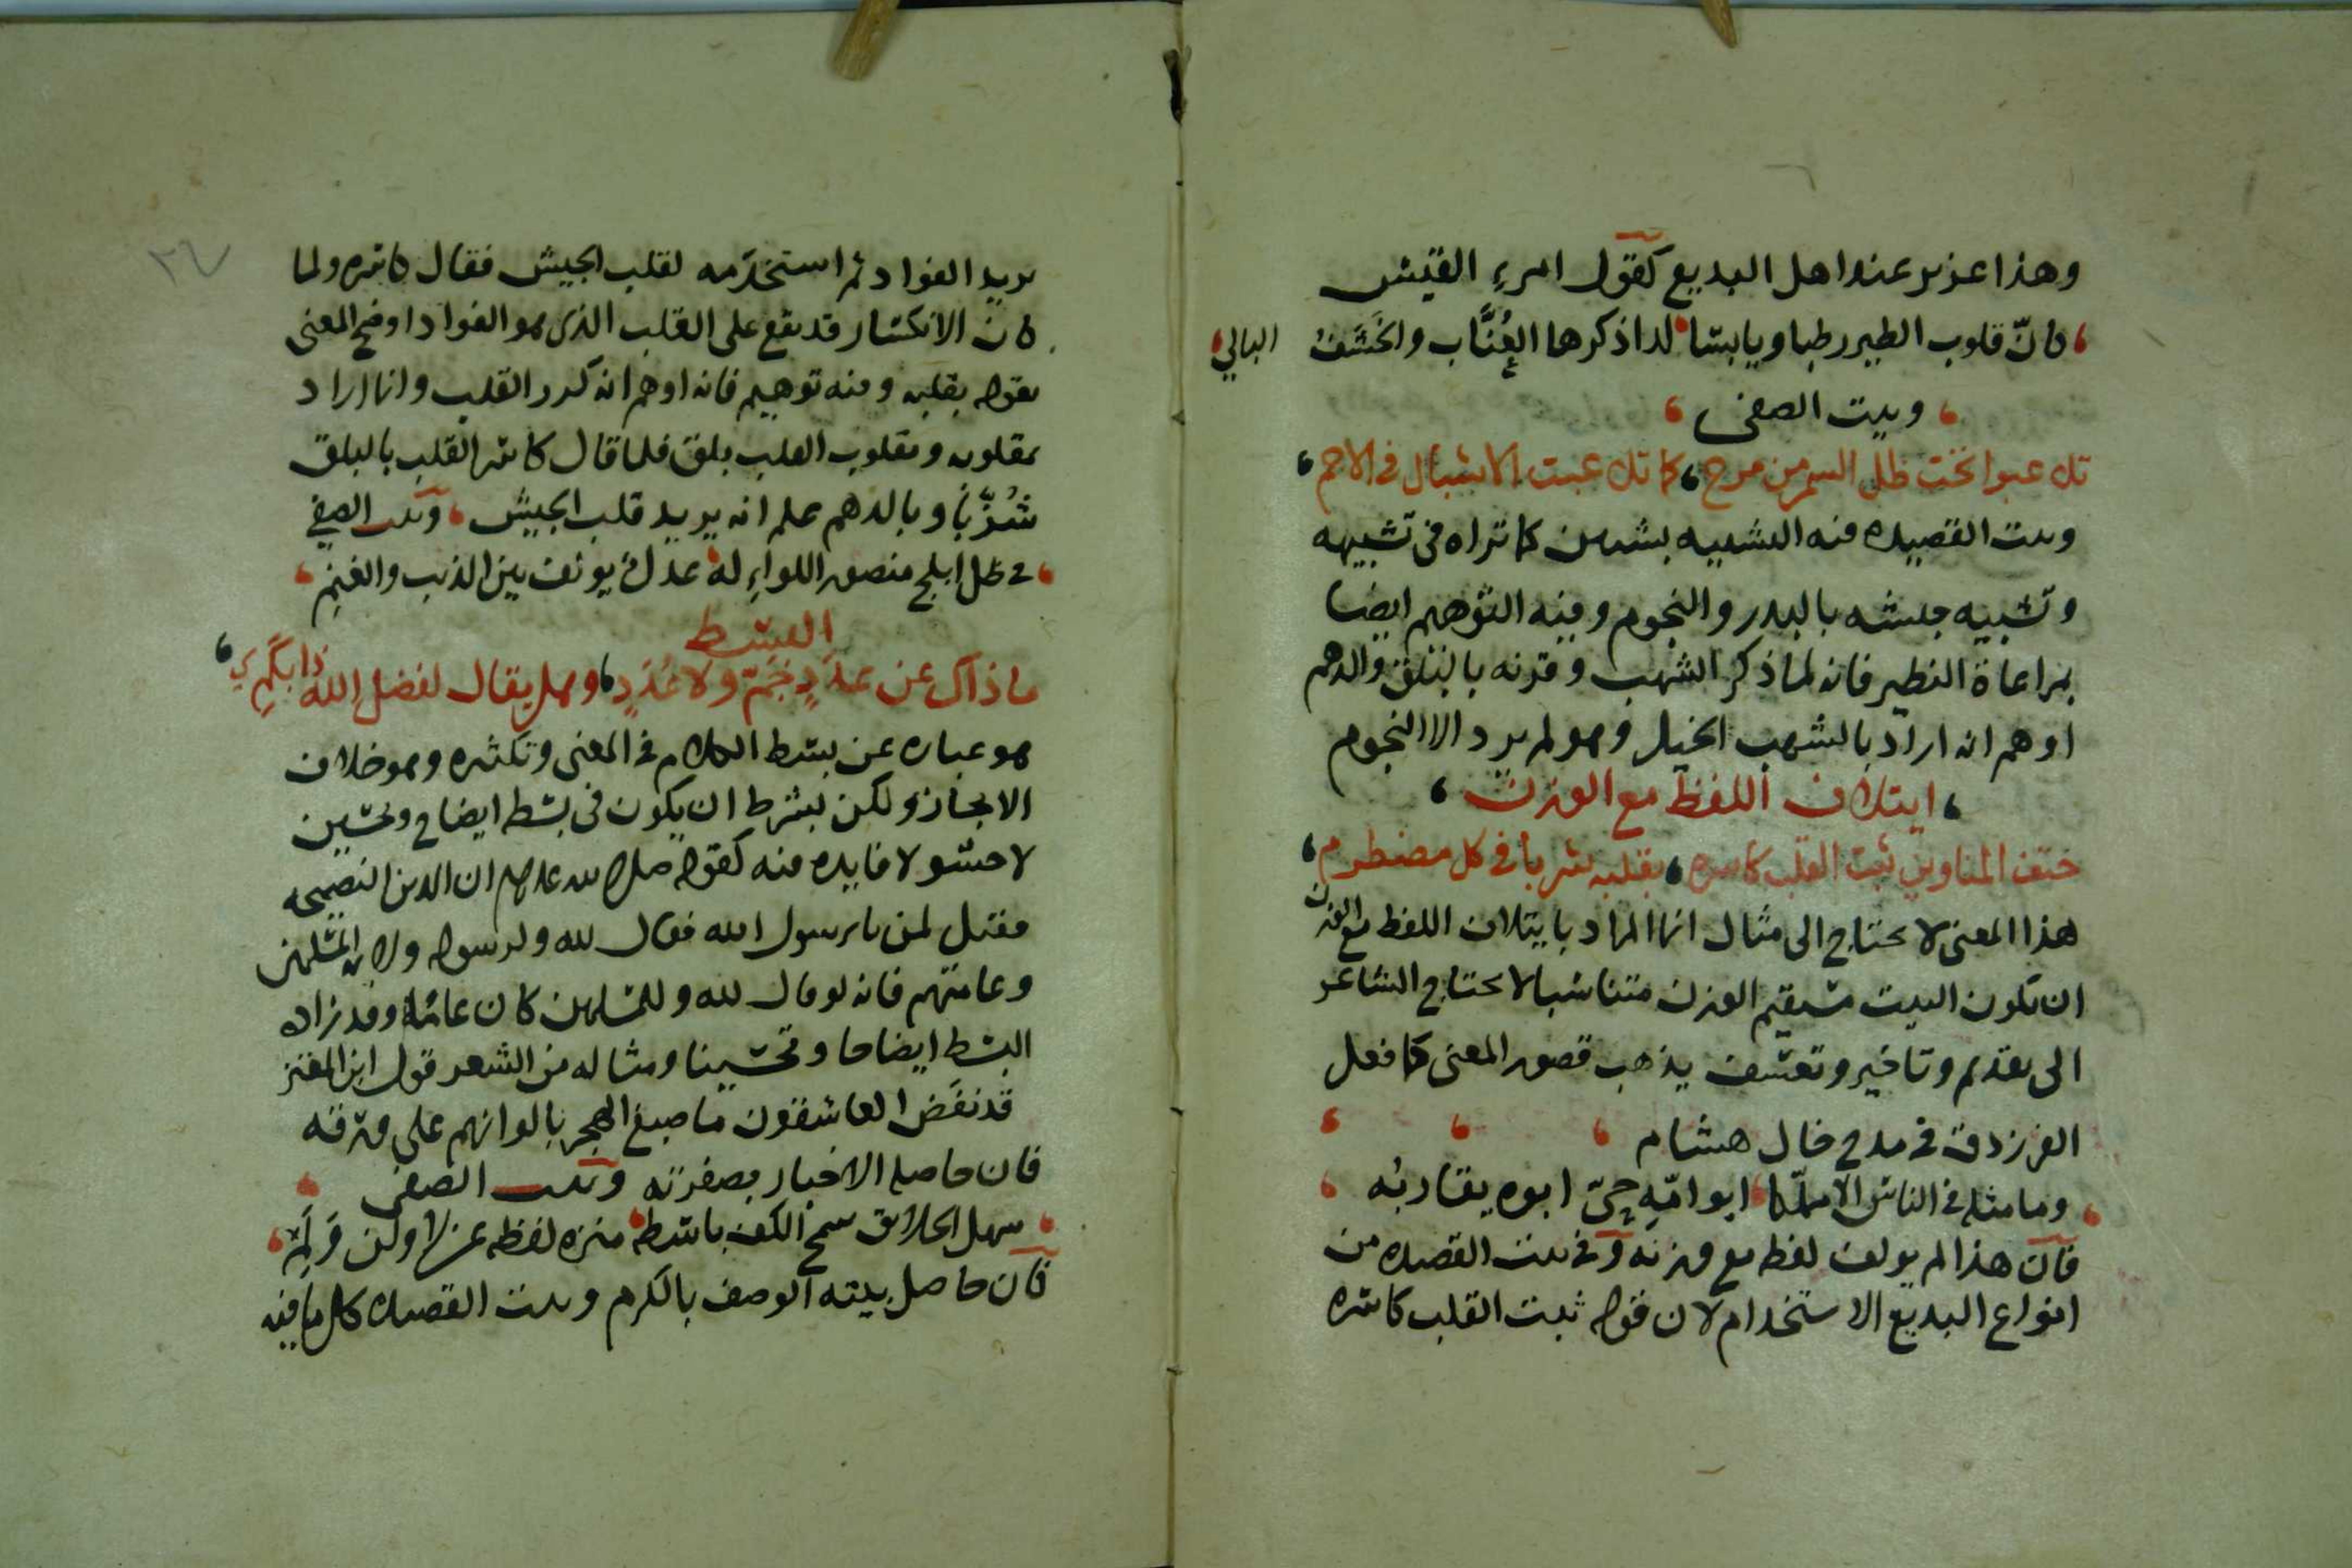 وهذا عزيز عند اهل البديع كقول امرء القيس
كانّ قلوب الطير رطبا ويابسا لدا ذكرها العُنَّاب والحَشَفُ البالي
وبيت الصفى
تلاعبوا تحت ظل السمر من مرح كما تلاعبت الاشبال فى الاجم
وبيت القصيده فيه التشبيه بشيين كما تراه فى تشبيهه
وتشبيه جيشه بالبدر والنجوم وفيه التوهيم ايضا
بمراعاة النظير فانه لما ذكر الشهب وقرنه بالبلق والدهم
اوهم انه اراد بالشهب الخيل وهو لم يرد الا النجوم
ايتلاف اللفظ مع الوزن
حتف المناوين ثبت القلب كاسره بقلبه شربا فى كل مضطرم
هذا المعنى لا يحتاج الى مثال انما المراد بايتلاف اللفظ مع الوزن
ان يكون البيت مستقيم الوزن متناسبا لا يحتاج الشاعر
الى تقديم وتاخير وتعسف يذهب قصور المعنى كما فعل
الفرزدق فى مدح خال هشام
وما مثله فى الناس الا مملّكا ابو امّه حىّ ابوه يقاربُه
فان هذا لم يولف لفظه مع وزنه وفى بيت القصيده من
انواع البديع الاستخدام لان قوله ثبت القلب كاسره
يريد الفواد ثم استخدمه لقلب الجيش فقال كاسره ولما
كان الانكسار قد يقع على القلب الذى هو الفواد اوضح المعنى
بقوله بقلبه وفيه توهيم فانه اوهم انه كرر القلب وانما اراد
بمقلوبه ومقلوب القلب بلق فلما قال كاسر القلب بالبلق
شُزَّبا وبالدهم علم انه يريد قلب الجيش وبيت الصفى
فى ظل ابلج منصور اللواء له عدل يولف بين الذيب والغنم
البسط
ما ذاك عن عَدَدٍ جَمّ ولا عُدَدٍ وهل يقال لفضل الله ذا بِكَمِ
هو عباره عن بسط الكلام فى المعنى وتكثيره وهو خلاف
الايجاز ولكن بشرط ان يكون فى بسطه ايضاح وتحسين
لا حشو لا فايده فيه كقوله صلى الله عليه وسلم ان الدين النصيحه
فقيل لمن يا رسول الله فقال لله ولرسوله ولايمه المسلمين
وعامتهم فانه لو قال لله وللمسلمين كان عاما وقد زاده
البسط ايضاحا وتحسينا ومثاله من الشعر قول ابن المعتز
قد نفَض العاشقون ما صبغ الهجر بالوانهم على ورقه
فان حاصله الاخبار بصفرته وبيت الصفى
سهل الخلائق سمح الكف باسطه منزه لفظه عن لا ولن ولَمِ
فان حاصل بيته الوصف بالكرم وبيت القصيده كل ما فيه